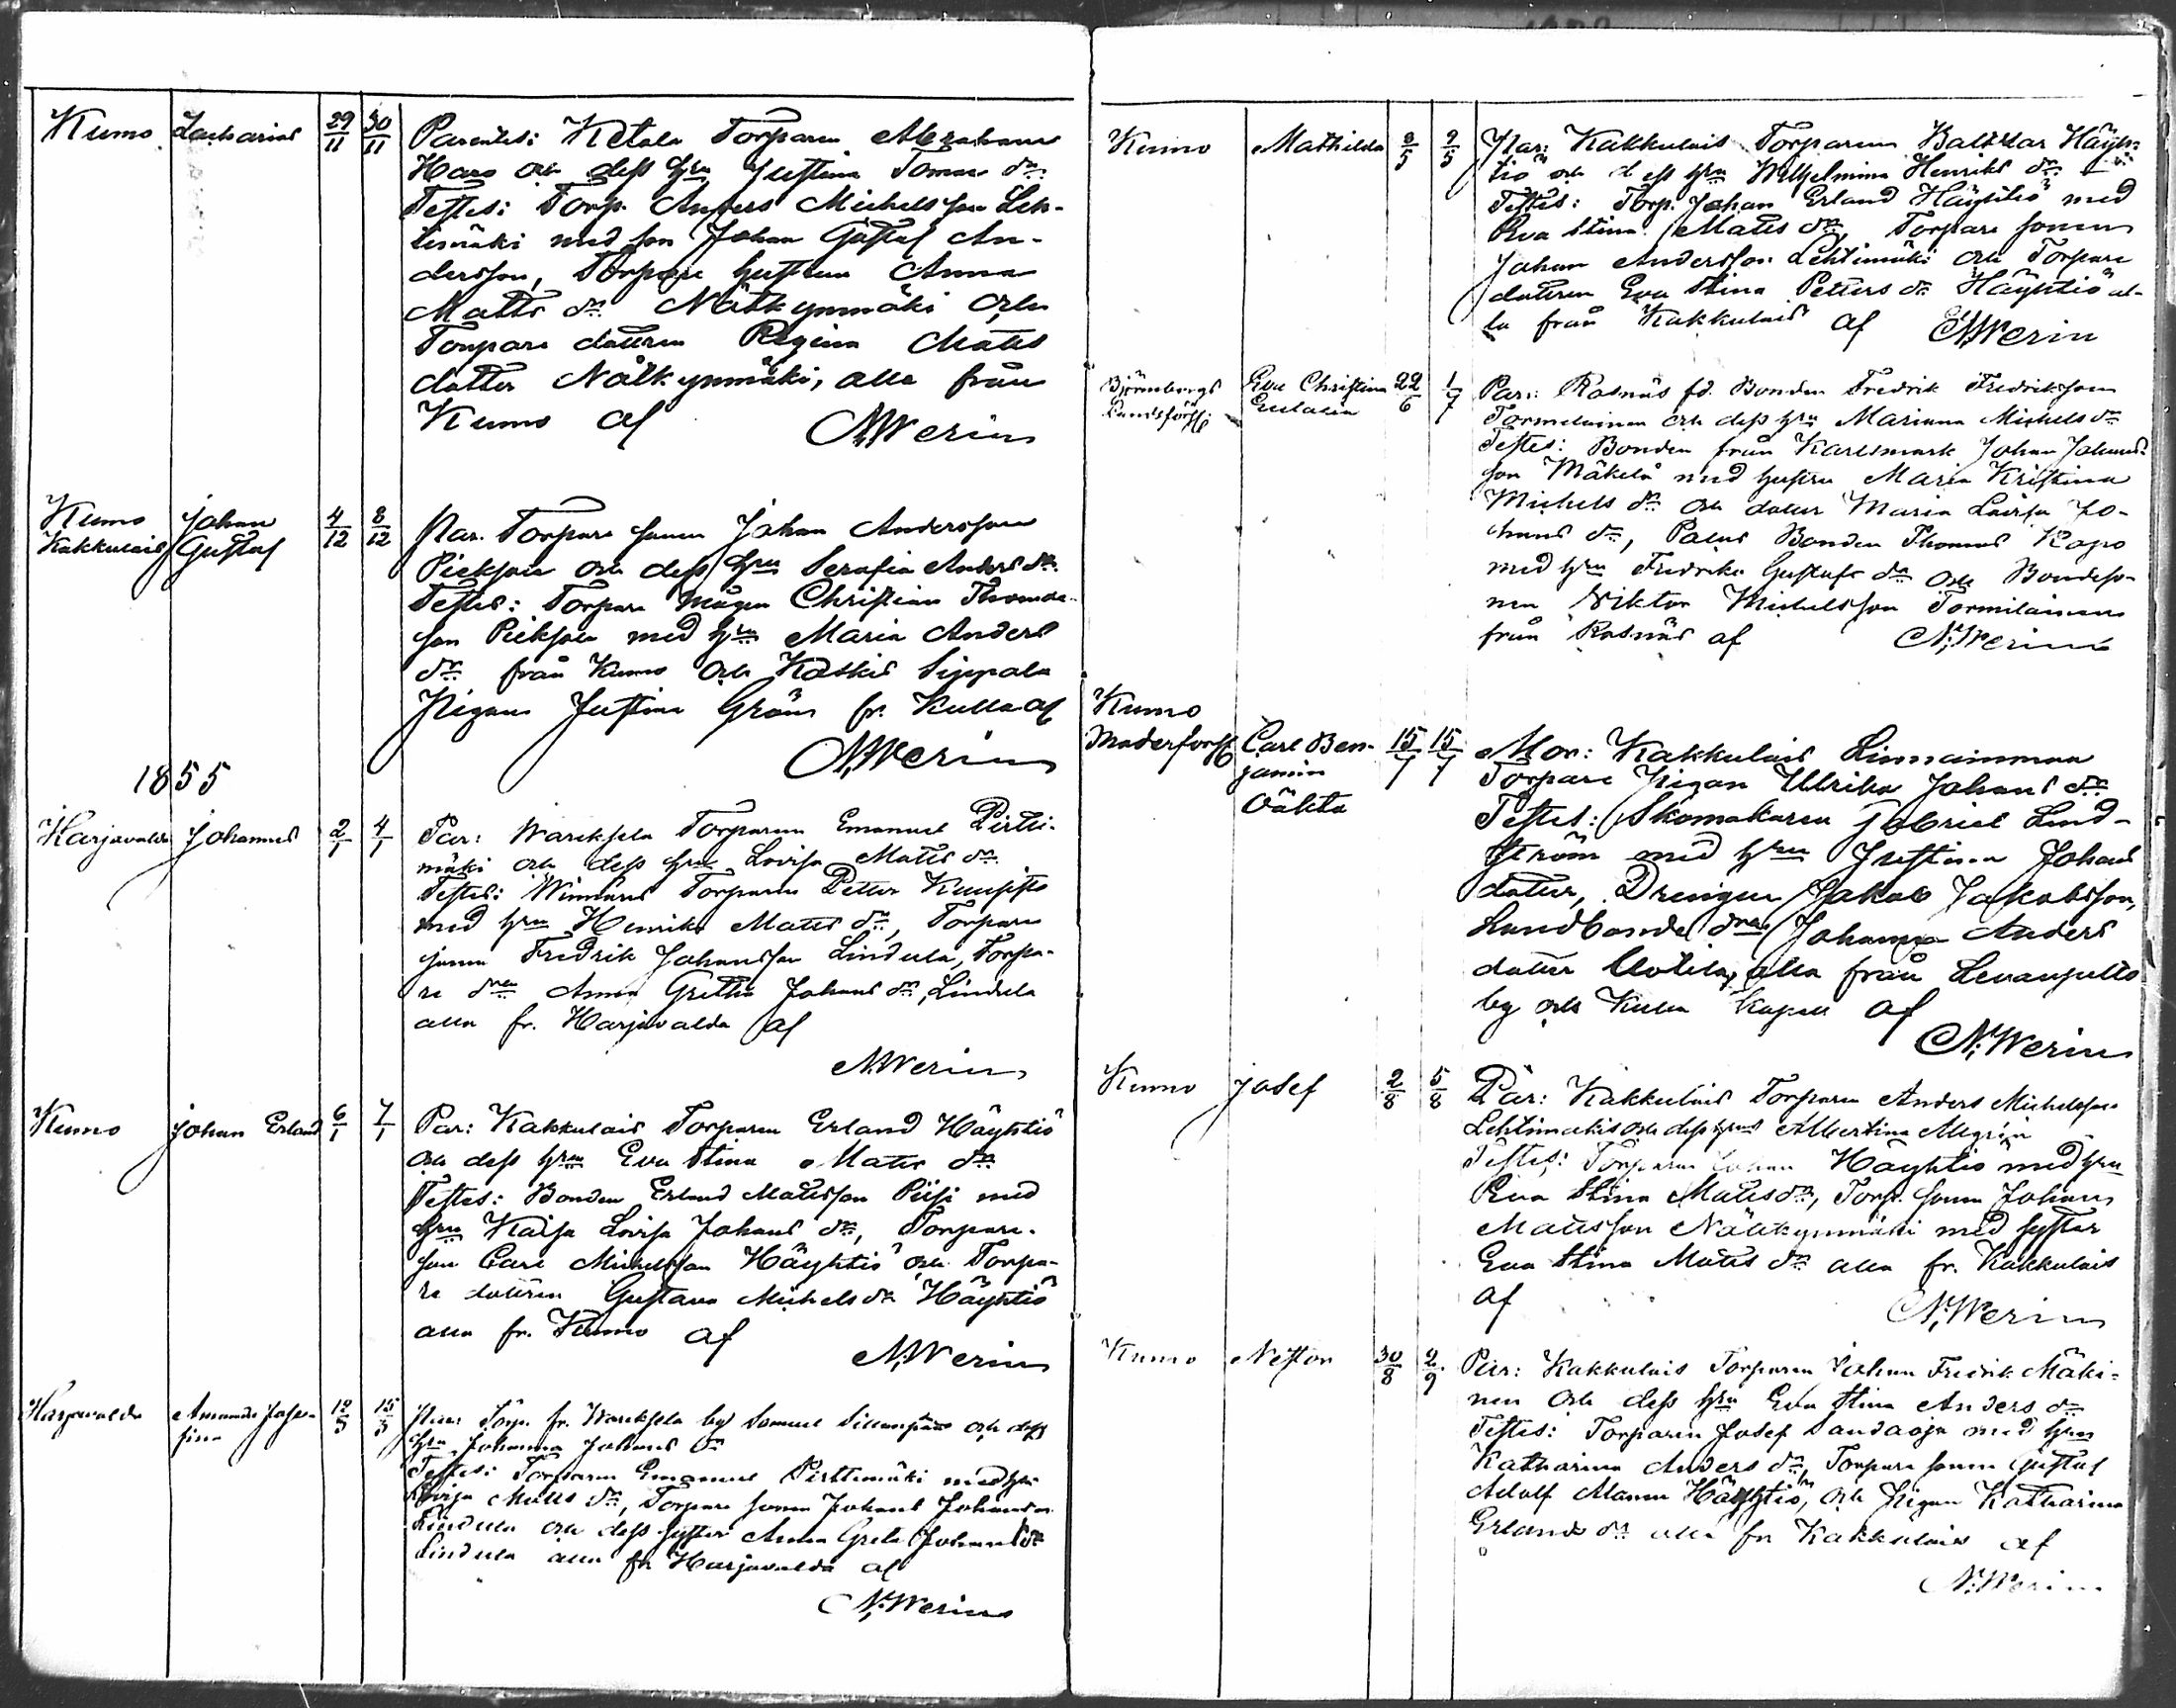 Kumo Zacharias 29/11 30/11 Parentes: Ketola Torparen Abraham
Hara och dess hru Justina Tomas dr
Testes: Torp. Anders Michelsson Leh-
timäki med son Johan Gustaf An-
dersson, Torpare hustrun Anna
Matts dr Nälkynmäki och
Torpare dottren Regina Matts
dotter Nälkynmäki, alla från
Kumo af N. Werin
Kumo Johan 4/12 8/12 Par. Torpare sonen Johan Andersson
Kakkulais Gustaf
Pieksala och dess hru Serafia Anders dr
Testes: Torpare mågen Christian Thomas-
son Pieksala med hru Maria Anders
dr från Kumo och Koskis Sippala
Pigan Justina Gröns fr. Kulla af
N. Werin
1855
Harjavalda Johannes 2/1 4/1 Par: Wareksela Torparen Emanuel Pirtti-
mäki och dess hru Lovisa Matts dr
Testes: Winnäres Torparen Petter Kauppi
med hru Henrika Matts dr, Torpare
sonen Fredrik Johansson Lindula, Torpa-
re dren Anna Gretha Johans dr, Lindula
alla fr. Harjavalda af
N. Werin
Kumo Johan Erland 6/1 7/1 Par: Kakkulais Torparen Erland Häyhtiö
och dess hru Eva Stina Matts dr
Testes: Bonden Erland Mattsson Piisi med
hru Kaisa Lovisa Johans dr, Torpare-
son Carl Michelsson Häyhtiö och Torpa-
re dottren Gustava Michels dr Häyhtiö
alla fr. Kumo af N. Werin
Harjavalda Amanda Jose- 12/3 15/3 Par: Torp. fr. Wareksela by Samuel Sillanpää och dess
fina
hru Johanna Johans dr
Testes: Torparen Emanuel Pirttimäki med hru
Lovisa Matts dr, Torpare sonen Johans Johansson
Lindula och dess syster Anna Greta Johans dr
Lindula alla fr Harjavalda af
N. Werin
Kumo Mathilda 8/5 9/5 Par: Kakkulais Torparen Baltzar Häyh-
tiö och dess hru Wilhelmina Henriks dr
Testes: Torp. Johan Erland Häyhtiö med
Eva Stina Matts dr, Torpare sonen
Johan Andersson Lehtimäki och Torpare
dottren Eva Stina Petters dr Häyhtiö al-
la från Kakkulais af N. Werin
Björneborgs Eva Christina 22/6 1/7 Par: Rosnäs fd. Bonden Fredrik Fredriksson
Landsförs. Eulalia
Tormilainen och dess hru Mariana Michels dr
Testes: Bonden från Karlsmark Johan Johans-
son Mäkelä med hustru Maria Kristina
Michels dr och dotter Maria Lovisa Jo-
hans dr, Paeus Bonden Thomas Kapo
med hru Fredrika Gustafs dr och Bondeso-
nen Viktor Michelsson Tormilainen
från Rosnäs af N. Werin
Kumo
Maderforss Carl Ben- 15/7 15/7 Mor: Kakkulais Linnainmaa
jamin
oäkta
Torpare Pigan Ulrika Johans dr
Testes: Skomakaren Gabriel Lind-
ström med hru Justina Johans
dotter, Drengen Jakob Jakobsson,
Landbonde dren Johanna Anders
dotter Uotila, alla från Levanpelto
by och Kulla kapell af
N. Werin
Kumo Josef 2/8 5/8 Par: Kakkulais Torparen Anders Michelsson
Lehtimäki och dess hru Albertina Megrin
Testes: Torparen Johan Häyhtiö med hru
Eva Stina Matts dr, Torp. sonen Johan
Mattsson Nälkkynmäki med syster
Eva Stina Matts dr alla fr. Kakkulais
af N. Werin
Kumo Nestor 30/8 2/9 Par: Kakkulais Torparen Johan Fredrik Mäki-
nen och dess hru Eva Stina Anders dr
Testes: Torparen Josef Sandaoja med hru
Katharina Anders dr, Torpare sonen Gustaf
Adolf Häyhtiö, och Pigan Katharina
Erlands dr alla fr Kakkulais af
N. Werin